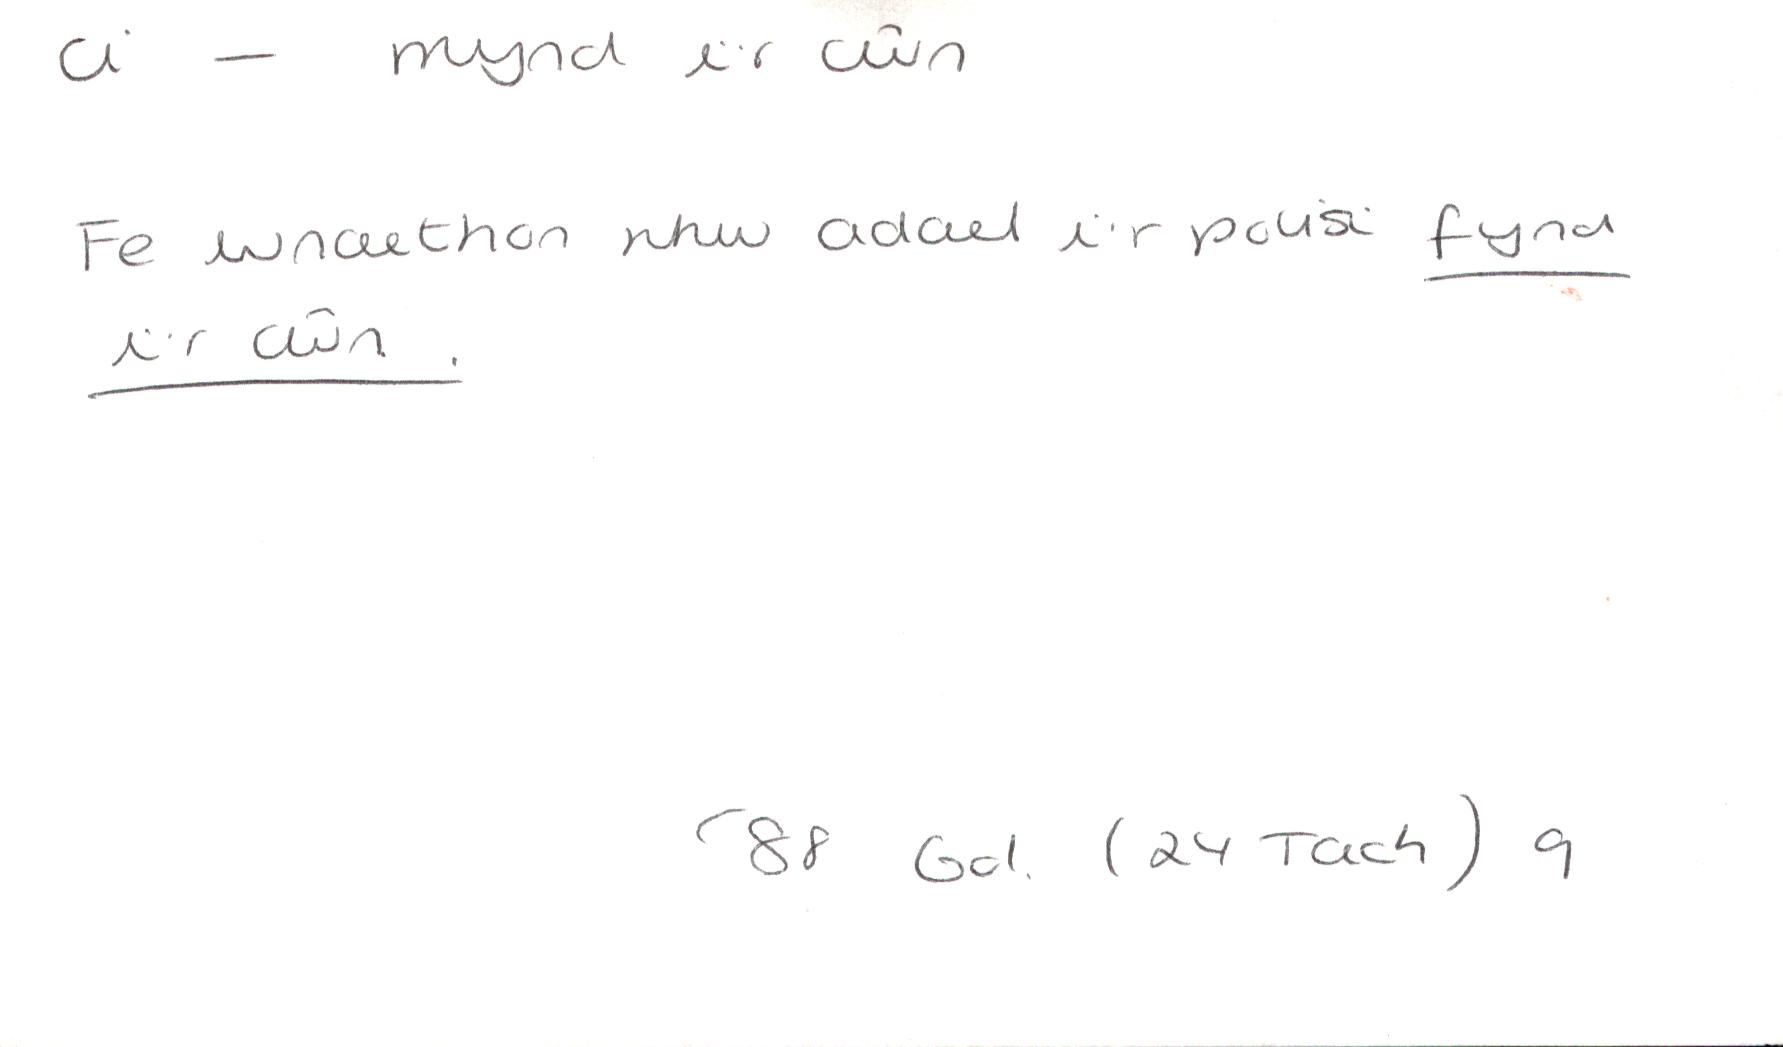 ci — mynd i'r cŵn
Fe wnaethon nhw adael i'r polisi fynd
i'r cŵn.
'88 Gol. (24 Tach) 9